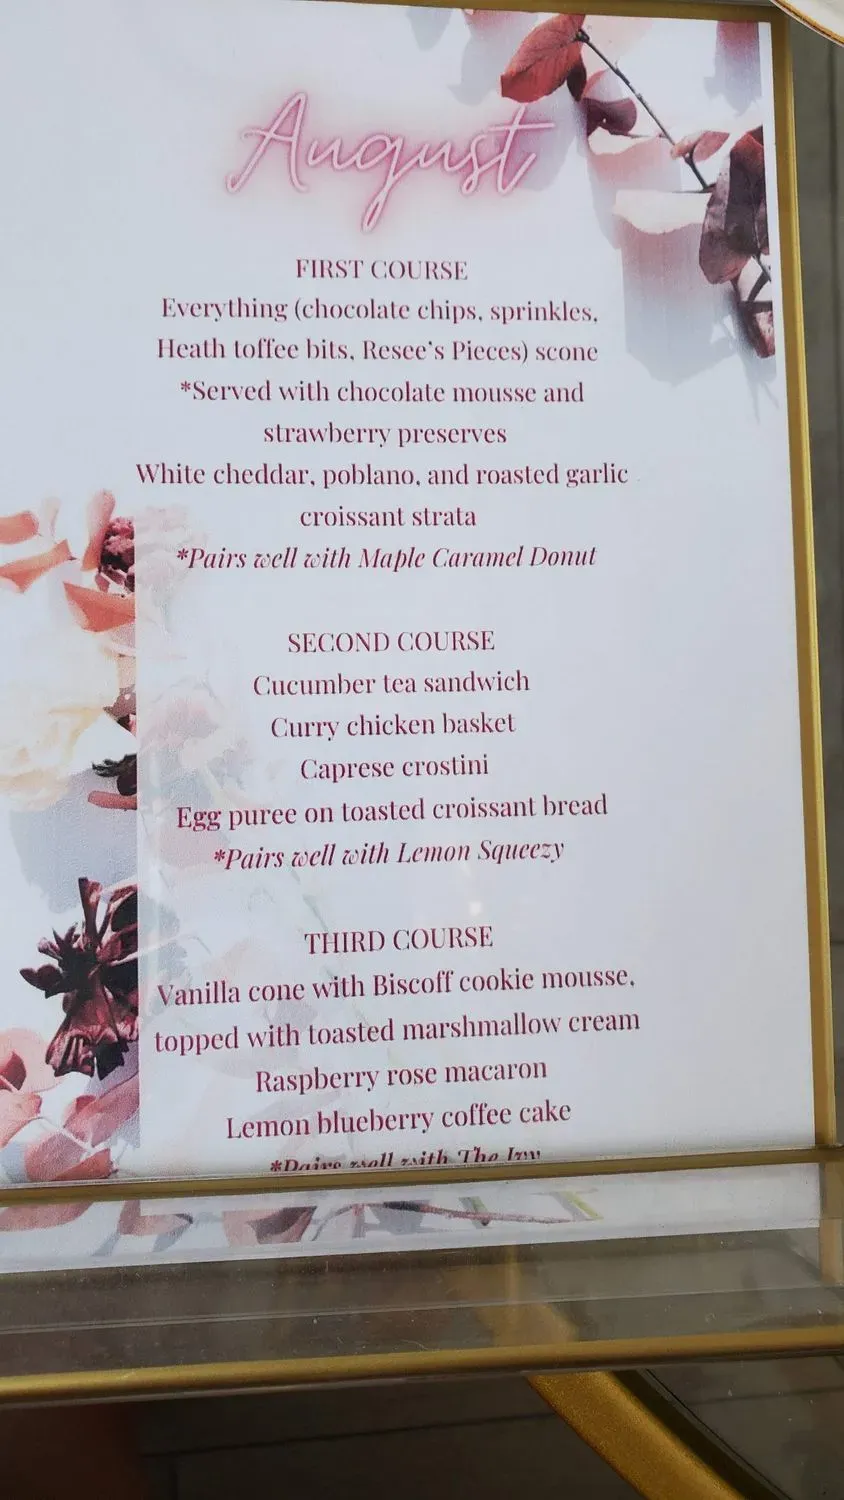 August
FIRST COURSE
Everything (chocolate chips, sprinkles,
Heath toffee bits, Resee's Pieces) scone
*Served with chocolate mousse and
strawberry preserves
White cheddar, poblano, and roasted garlic
croissant strata
*Pairs well with Maple Caramel Donut
SECOND COURSE
Cucumber tea sandwich
Curry chicken basket
Caprese crostini
Egg puree on toasted croissant bread
*Pairs well with Lemon Squeezy
THIRD COURSE
Vanilla cone with Biscoff cookie mousse,
topped with toasted marshmallow cream
Raspberry rose macaron
Lemon blueberry coffee cake
*Pairs well with The